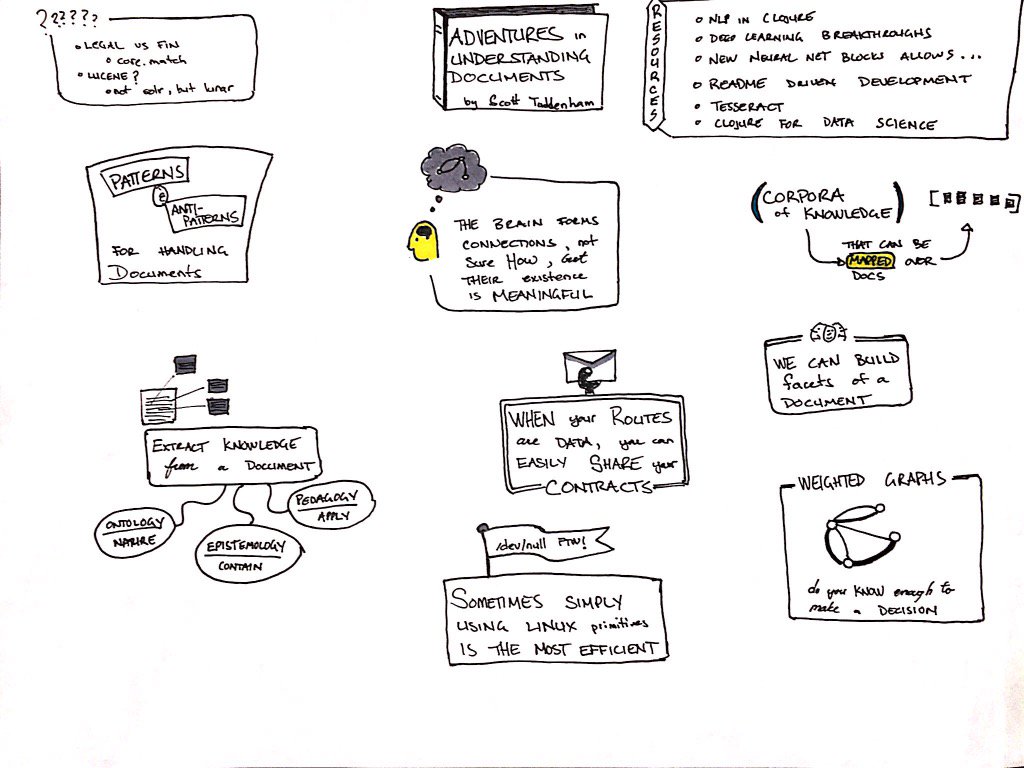 ?????? 
• LEGAL vs FIN
• core.match
• LUCENE?
• not solr, but lunar
ADVENTURES in
UNDERSTANDING
DOCUMENTS
by Scott Toddenham
RESOURCES
• NLP IN CLOJURE
• DEEP LEARNING BREAKTHROUGHS
• NEW NEURAL NET BLOCKS ALLOWS...
• README DRIVEN DEVELOPMENT
• TESSERACT
• CLOJURE FOR DATA SCIENCE
PATTERNS
&
ANTI-
PATTERNS
FOR HANDLING
Documents
THE BRAIN FORMS
CONNECTIONS, not
Sure How, but
THEIR existence
is MEANINGFUL
(CORPORA
of KNOWLEDGE)
THAT CAN BE
MAPPED OVER
DOCS
WE CAN BUILD
facets of a
DOCUMENT
EXTRACT KNOWLEDGE
from a DOCUMENT
ONTOLOGY
EPISTEMOLOGY
CONTAIN
PEDAGOGY
APPLY
WHEN your ROUTES
are DATA, you can
EASILY SHARE your
CONTRACTS
/dev/null FTW!
SOMETIMES SIMPLY
USING LINUX primitives
IS THE MOST EFFICIENT
WEIGHTED GRAPHS
do you KNOW enough to
make a DECISION